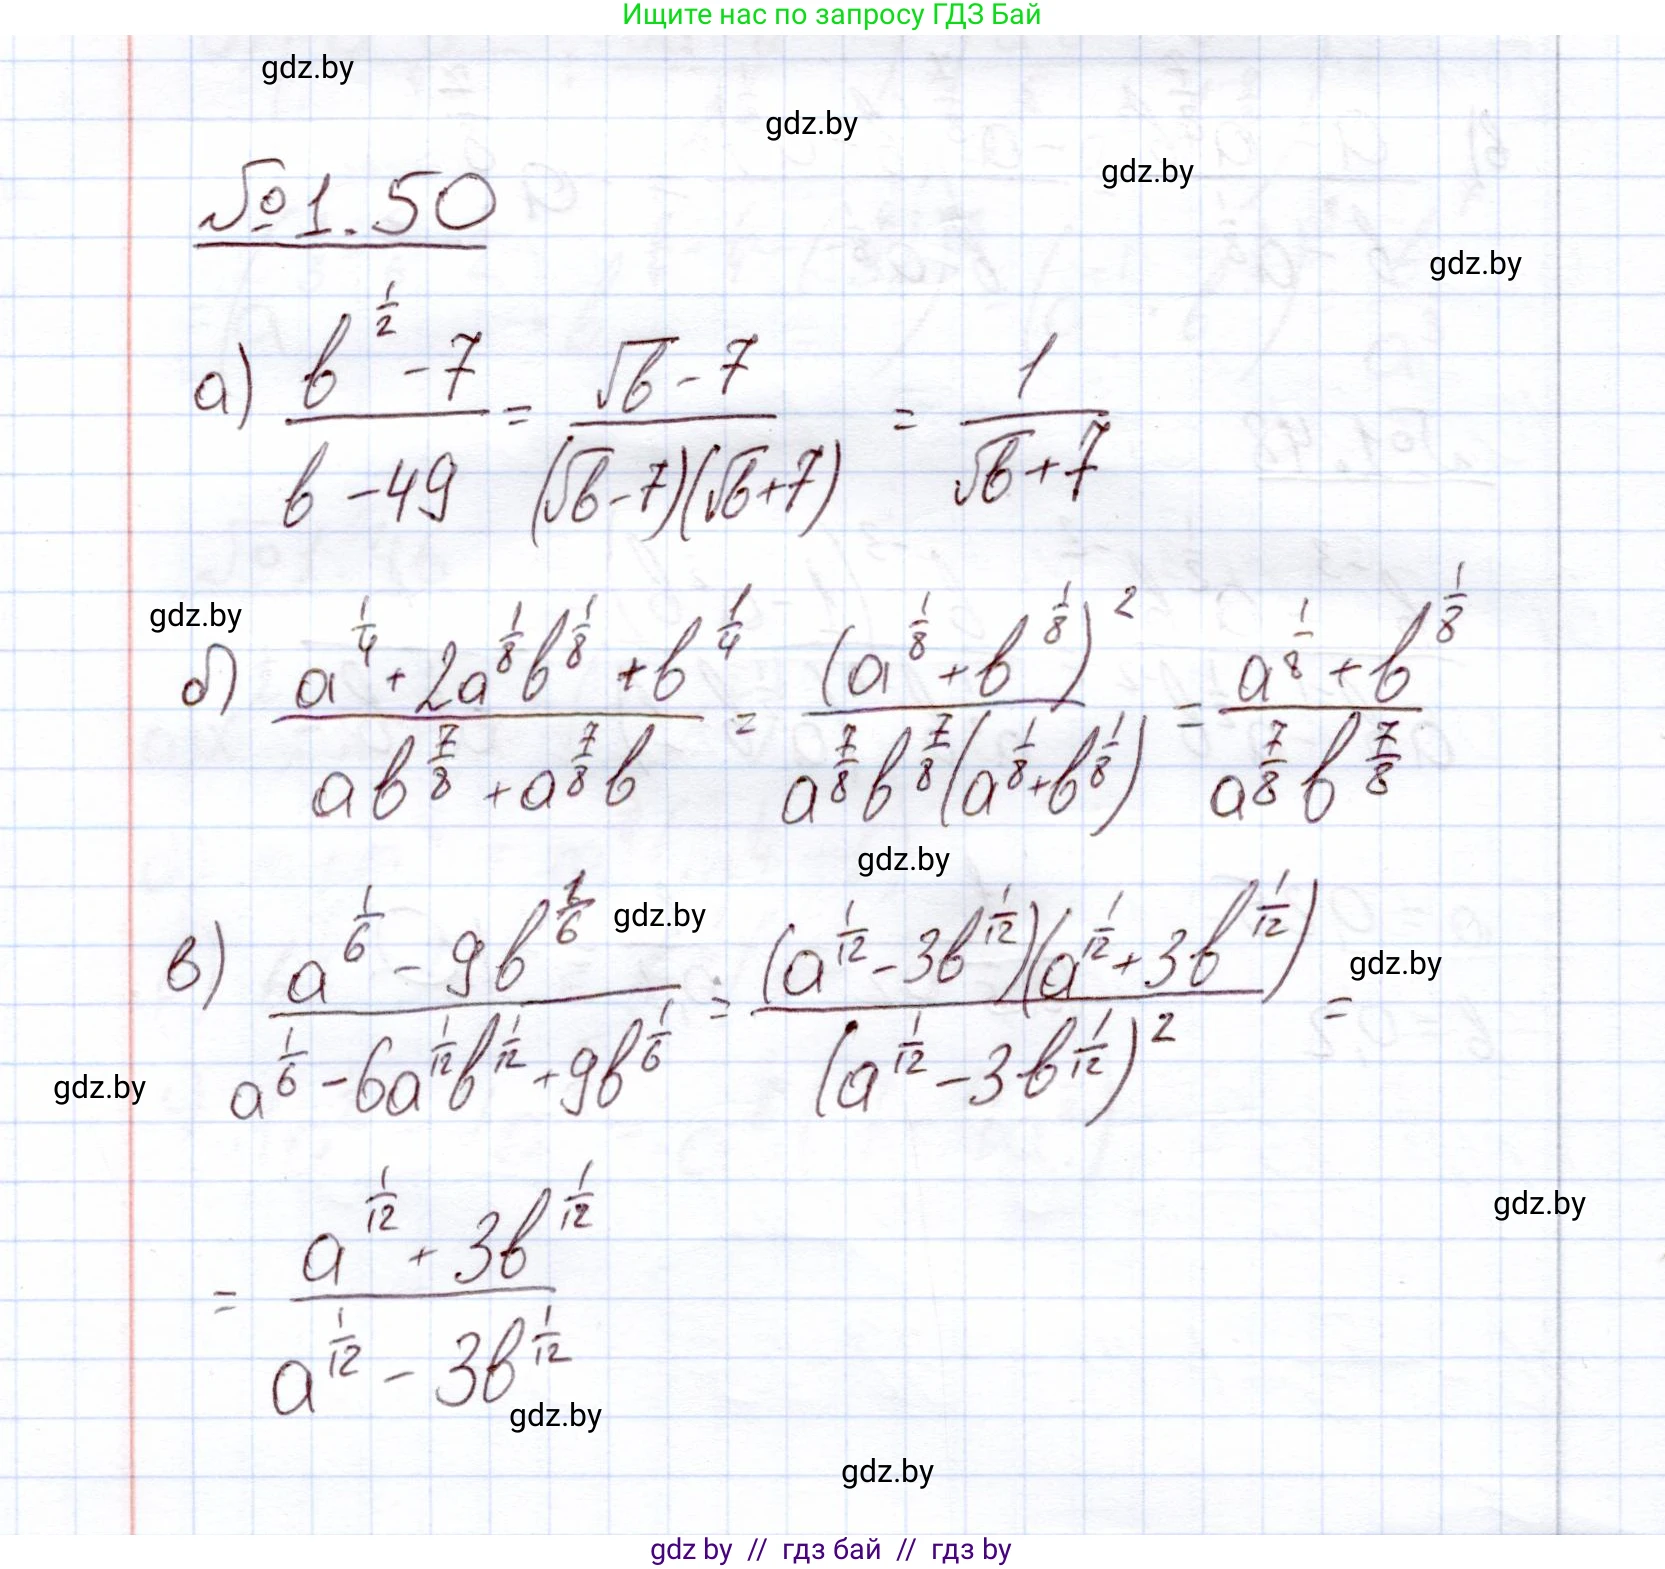 Ищите нас по запросу ГДЗ Бай
gdz.by
gdz.by
gdz.by
№1.50
gdz.by
а) (b^(1/2) - 7)/(b - 49) = (√b - 7)/((√b - 7)(√b + 7)) = 1/(√b + 7)
gdz.by
б) (a^(1/4) + 2a^(1/8)b^(1/8) + b^(1/4))/(ab^(7/8) + a^(7/8)b) = (a^(1/8) + b^(1/8))^2/(a^(7/8)b^(7/8)(a^(1/8) + b^(1/8))) = (a^(1/8) + b^(1/8))/(a^(7/8)b^(7/8))
gdz.by
gdz.by
в) (a^(1/6) - 9b^(1/6))/(a^(1/6) - 6a^(1/12)b^(1/12) + 9b^(1/6)) = ((a^(1/12) - 3b^(1/12))(a^(1/12) + 3b^(1/12)))/(a^(1/12) - 3b^(1/12))^2 =
gdz.by
gdz.by
gdz.by
= (a^(1/12) + 3b^(1/12))/(a^(1/12) - 3b^(1/12))
gdz.by
gdz.by
gdz by // гдз бай // гдз by